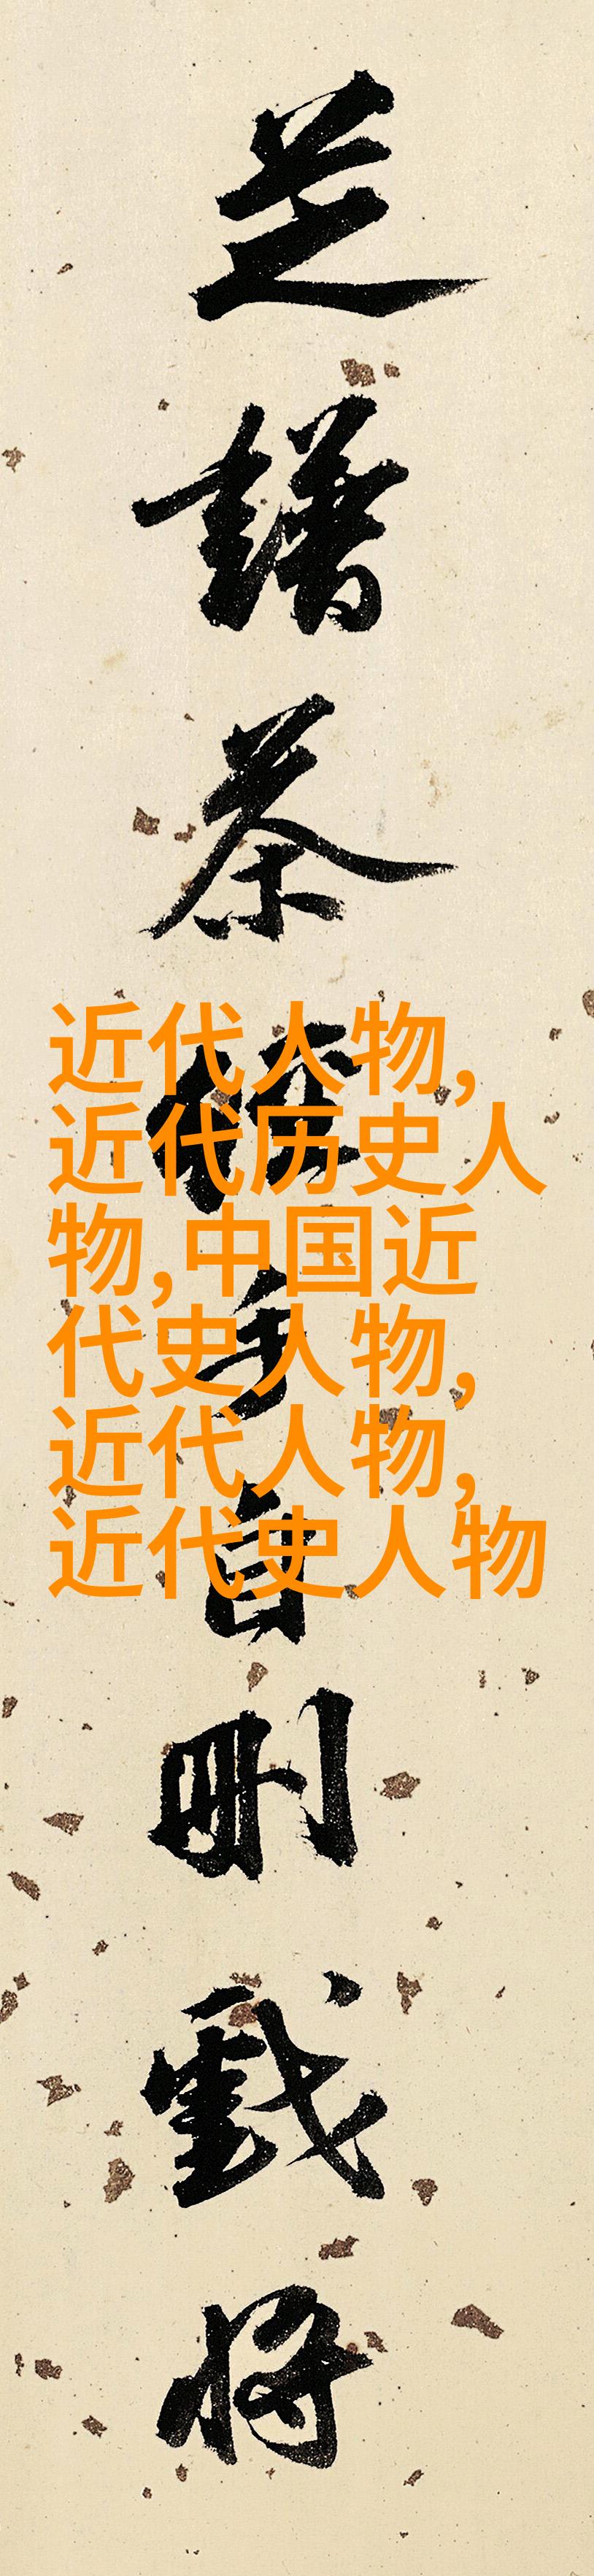 芝譜茶經手自刪戲將
近代人物,
近代历史人
物,中国近
代史人物,
近代人物,
近代史人物